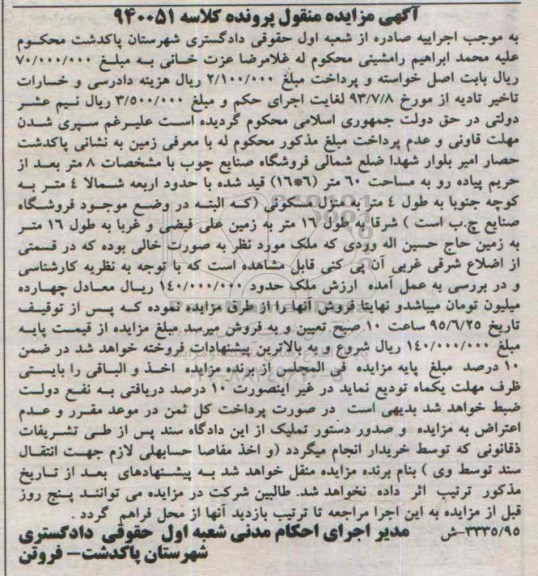 آگهی مزایده منقول پرونده کلاسه ۹۴۰۰۵۱
به موجب اجراییه صادره از شعبه اول حقوقی دادگستری شهرستان پاکدشت محکوم
علیه محمد ابراهیم رامشینی محکوم له غلامرضا عزت خانی به مبلغ ۷۰/۰۰۰/۰۰۰
ریال بابت اصل خواسته و پرداخت مبلغ ۲/۱۰۰/۰۰۰ ریال هزینه دادرسی و خسارات
تاخیر تادیه از مورخ ۹۳/۷/۸ لغایت اجرای حکم و مبلغ ۳/۵۰۰/۰۰۰ ریال نیم عشر
دولتی در حق دولت جمهوری اسلامی محکوم گردیده است علیرغم سپری شدن
مهلت قانونی و عدم پرداخت مبلغ مذکور محکوم له با معرفی زمین به نشانی پاکدشت
حصار امیر بلوار شهدا ضلع شمالی فروشگاه صنایع چوب با مشخصات ۸ متر بعد از
حریم پیاده رو به مساحت ۶۰ متر (۶*۱۶) قید شده با حدود اربعه شمالا ۴ متر به
کوچه جنوبا به طول ۴ متر به منزل مسکونی (که البته در وضع موجود فروشگاه
صنایع چ.ب است ) شرقا به طول ۱۶ متر به زمین علی فیضی و غربا به طول ۱۶ متر
به زمین حاج حسین اله وردی که ملک مورد نظر به صورت خالی بوده که در قسمتی
از اضلاع شرقی غربی آن پی کنی قابل مشاهده است که با توجه به نظریه کارشناسی
و در بررسی به عمل آمده ارزش ملک حدود ۱۴۰/۰۰۰/۰۰۰ ریال معادل چهارده
میلیون تومان میباشدو نهایتا فروش آنها را از طرق مزایده نموده که پس از توقیف
تاریخ ۹۵/۶/۲۵ ساعت ۱۰ صبح تعیین و به فروش میرسد مبلغ مزایده از قیمت پایه
مبلغ ۱۴۰/۰۰۰/۰۰۰ ریال شروع و به بالاترین پیشنهادات فروخته خواهد شد در ضمن
۱۰ درصد مبلغ پایه مزایده فی المجلس از برنده مزایده اخذ و الباقی را بایستی
ظرف مهلت یکماه تودیع نماید در غیر اینصورت ۱۰ درصد دریافتی به نفع دولت
ضبط خواهد شد بدیهی است در صورت پرداخت کل ثمن در موعد مقرر و عدم
اعتراض به مزایده و صدور دستور تملیک از این دادگاه سند پس از طی تشریفات
ذقانونی که توسط خریدار انجام میگردد (و اخذ مفاصا حسابهلی لازم جهت انتقال
سند توسط وی ) بنام برنده مزایده منقل خواهد شد به پیشنهادهای بعد از تاریخ
مذکور ترتیب اثر داده نخواهد شد. طالبین شرکت در مزایده می توانند پنج روز
قبل از مزایده به این اجرا مراجعه تا ترتیب بازدید آنها از محل فراهم گردد .
۳۳۳۵/۹۵-ش مدیر اجرای احکام مدنی شعبه اول حقوقی دادگستری
شهرستان پاکدشت- فروتن